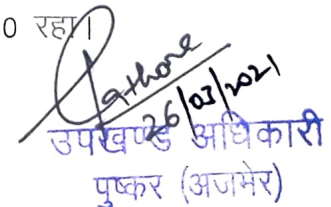 0 रहा।
Rathore
26/03/2021
उपखण्ड अधिकारी
पुष्कर (अजमेर)